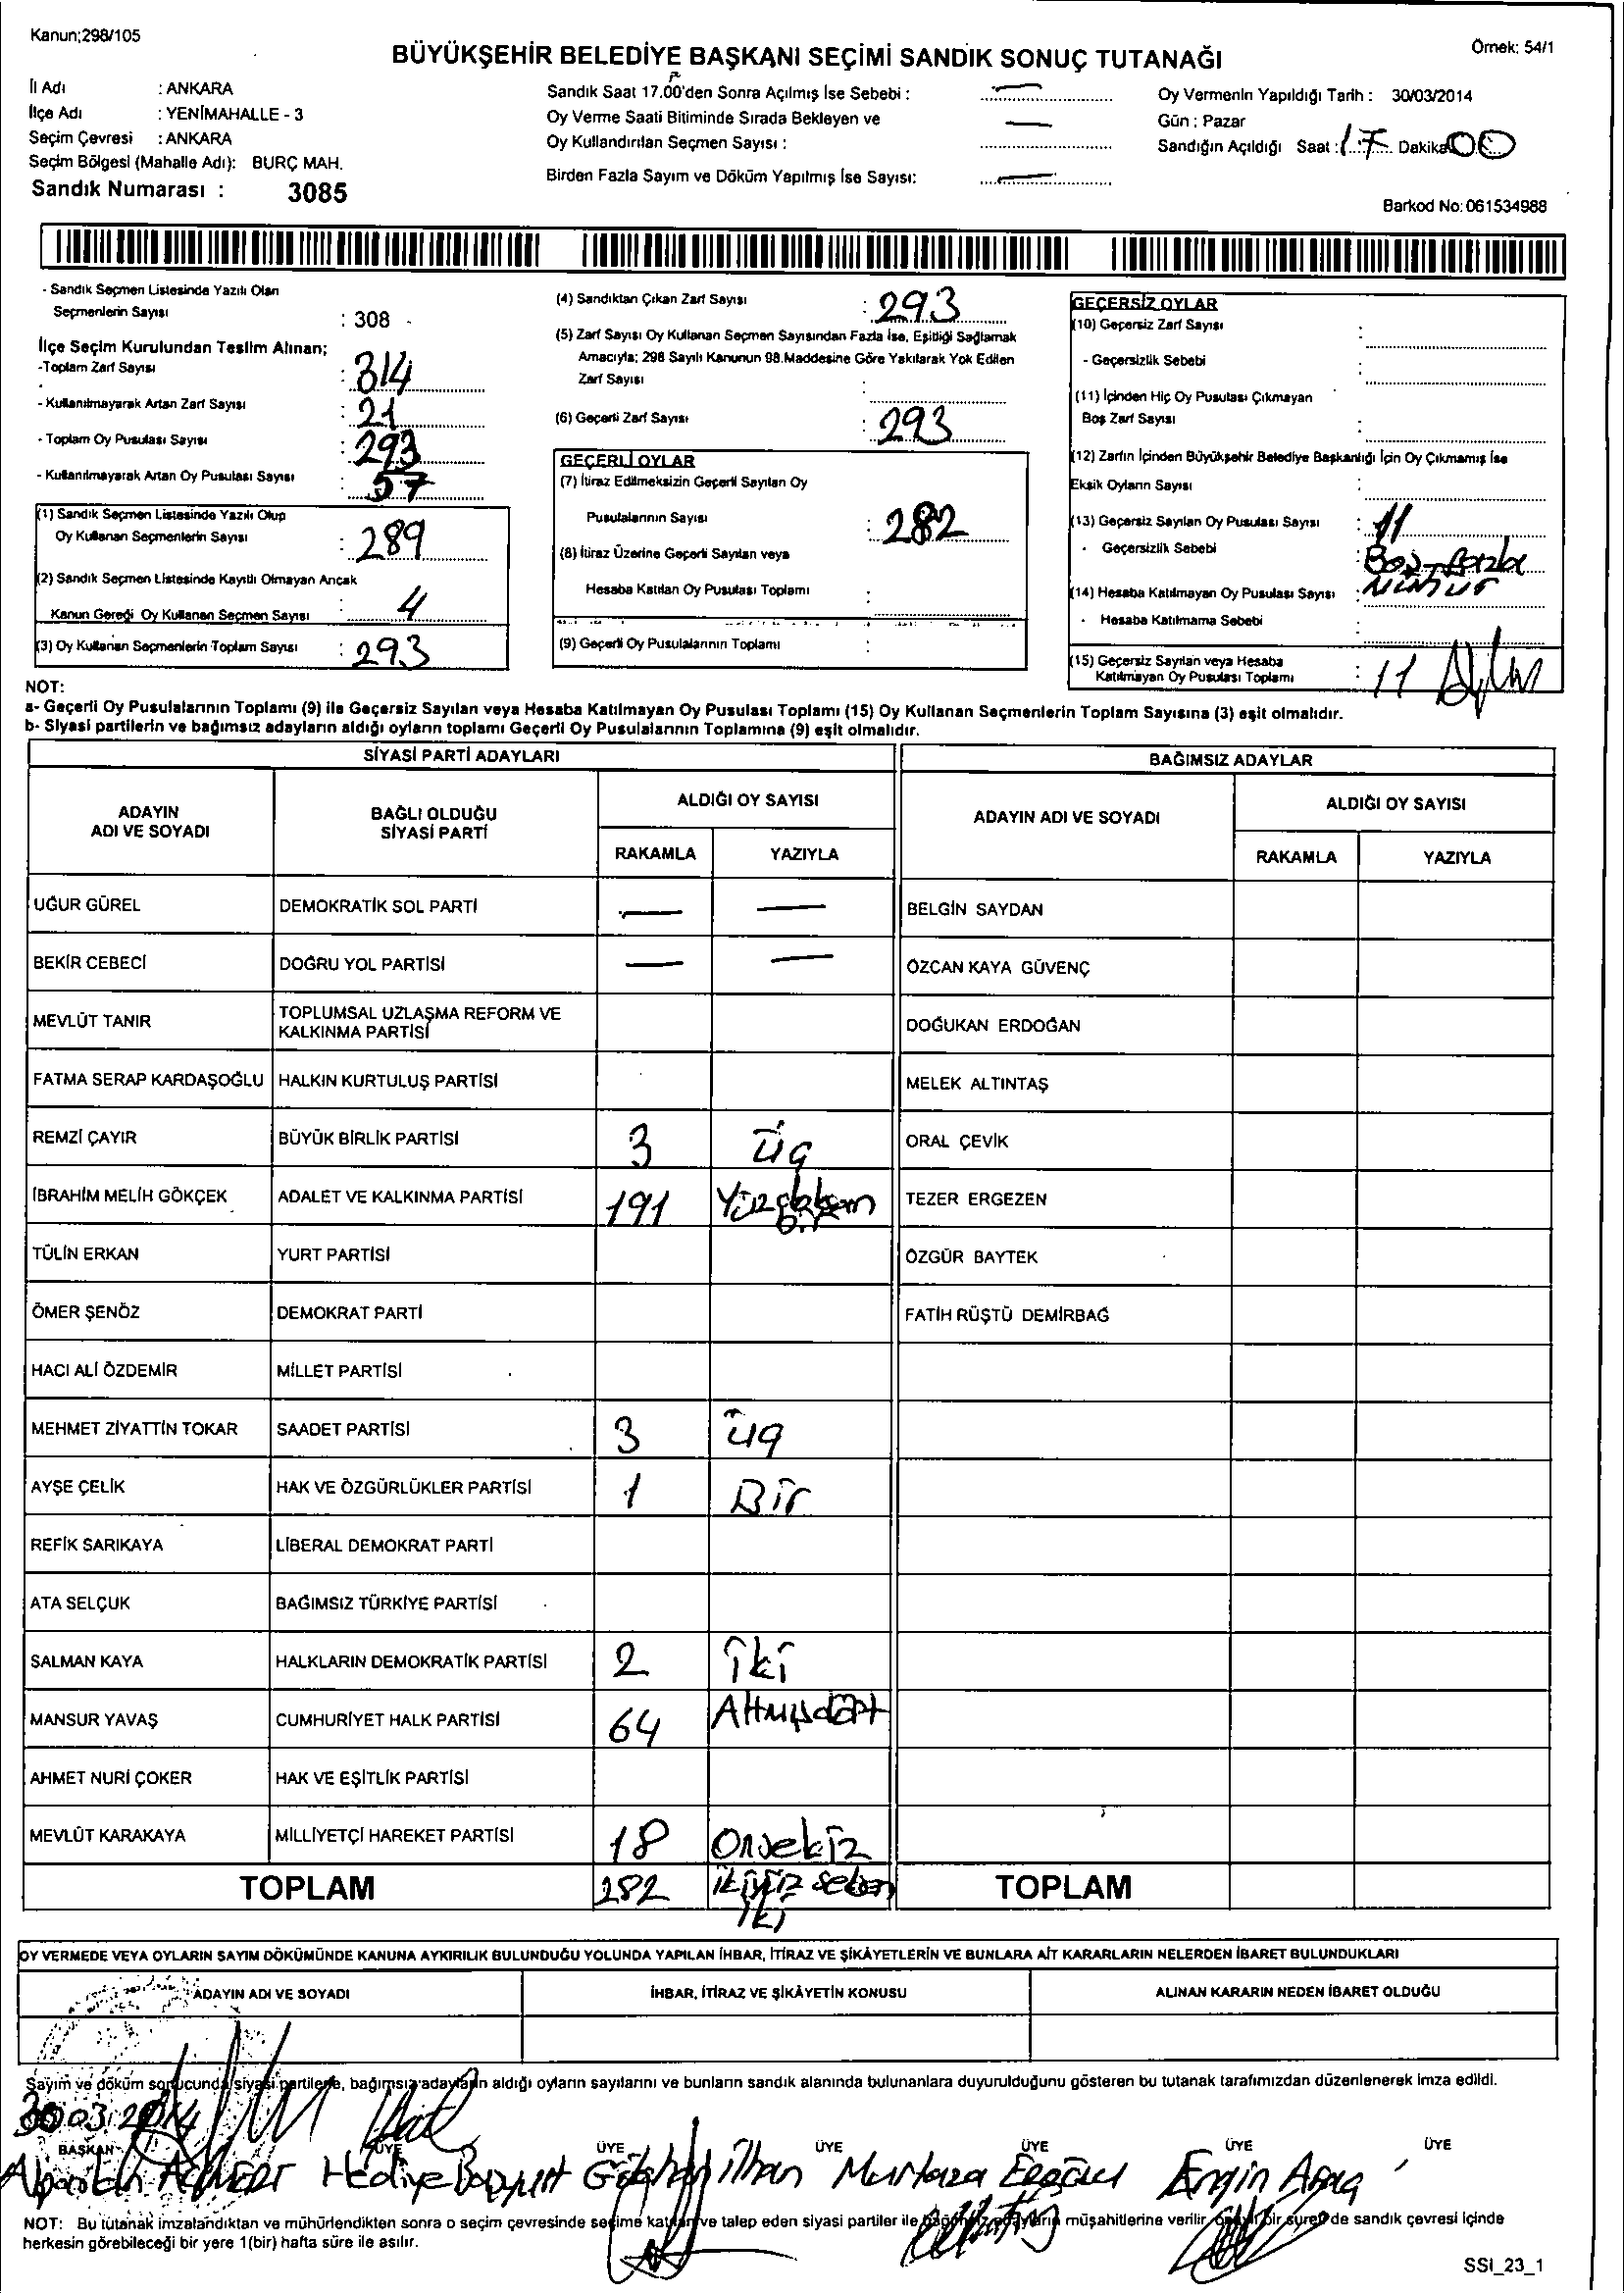 Kanun;298/105
Örnek: 54/1
BÜYÜKŞEHİR BELEDİYE BAŞKANI SEÇİMİ SANDIK SONUÇ TUTANAĞI
İl Adı : ANKARA
İlçe Adı : YENİMAHALLE - 3
Seçim Çevresi : ANKARA
Seçim Bölgesi (Mahalle Adı): BURÇ MAH.
Sandık Numarası : 3085
Sandık Saat 17.00'den Sonra Açılmış İse Sebebi : —
Oy Verme Saati Bitiminde Sırada Bekleyen ve
Oy Kullandırılan Seçmen Sayısı : —
Birden Fazla Sayım ve Döküm Yapılmış İse Sayısı: —
Oy Vermenin Yapıldığı Tarih : 30/03/2014
Gün : Pazar
Sandığın Açıldığı Saat : 17 Dakika 00
Barkod No: 061534988
- Sandık Seçmen Listesinde Yazılı Olan
Seçmenlerin Sayısı : 308
İlçe Seçim Kurulundan Teslim Alınan;
-Toplam Zarf Sayısı : 314
- Kullanılmayarak Artan Zarf Sayısı : 21
- Toplam Oy Pusulası Sayısı : 293
- Kullanılmayarak Artan Oy Pusulası Sayısı : 57
(1) Sandık Seçmen Listesinde Yazılı Olup
Oy Kullanan Seçmenlerin Sayısı : 289
(2) Sandık Seçmen Listesinde Kayıtlı Olmayan Ancak
Kanun Gereği Oy Kullanan Seçmen Sayısı : 4
(3) Oy Kullanan Seçmenlerin Toplam Sayısı : 293
(4) Sandıktan Çıkan Zarf Sayısı : 293
(5) Zarf Sayısı Oy Kullanan Seçmen Sayısından Fazla İse, Eşitliği Sağlamak
Amacıyla; 298 Sayılı Kanunun 98.Maddesine Göre Yakılarak Yok Edilen
Zarf Sayısı :
(6) Geçerli Zarf Sayısı : 293
GEÇERLİ OYLAR
(7) İtiraz Edilmeksizin Geçerli Sayılan Oy
Pusulalarının Sayısı : 282
(8) İtiraz Üzerine Geçerli Sayılan veya
Hesaba Katılan Oy Pusulası Toplamı :
(9) Geçerli Oy Pusulalarının Toplamı :
GEÇERSİZ OYLAR
(10) Geçersiz Zarf Sayısı :
- Geçersizlik Sebebi :
(11) İçinden Hiç Oy Pusulası Çıkmayan
Boş Zarf Sayısı :
(12) Zarfın İçinden Büyükşehir Belediye Başkanlığı İçin Oy Çıkmamış İse
Eksik Oyların Sayısı :
(13) Geçersiz Sayılan Oy Pusulası Sayısı : 11
- Geçersizlik Sebebi : Boş-fazla
mühür
(14) Hesaba Katılmayan Oy Pusulası Sayısı :
- Hesaba Katılmama Sebebi :
(15) Geçersiz Sayılan veya Hesaba
Katılmayan Oy Pusulası Toplamı : 11
NOT:
a- Geçerli Oy Pusulalarının Toplamı (9) ile Geçersiz Sayılan veya Hesaba Katılmayan Oy Pusulası Toplamı (15) Oy Kullanan Seçmenlerin Toplam Sayısına (3) eşit olmalıdır.
b- Siyasi partilerin ve bağımsız adayların aldığı oyların toplamı Geçerli Oy Pusulalarının Toplamına (9) eşit olmalıdır.
SİYASİ PARTİ ADAYLARI
BAĞIMSIZ ADAYLAR
ADAYIN
ADI VE SOYADI
BAĞLI OLDUĞU
SİYASİ PARTİ
ALDIĞI OY SAYISI
RAKAMLA YAZIYLA
ADAYIN ADI VE SOYADI
ALDIĞI OY SAYISI
RAKAMLA YAZIYLA
UĞUR GÜREL DEMOKRATİK SOL PARTİ — — BELGİN SAYDAN
BEKİR CEBECİ DOĞRU YOL PARTİSİ — — ÖZCAN KAYA GÜVENÇ
MEVLÜT TANIR TOPLUMSAL UZLAŞMA REFORM VE
KALKINMA PARTİSİ DOĞUKAN ERDOĞAN
FATMA SERAP KARDAŞOĞLU HALKIN KURTULUŞ PARTİSİ MELEK ALTINTAŞ
REMZİ ÇAYIR BÜYÜK BİRLİK PARTİSİ 3 üç ORAL ÇEVİK
İBRAHİM MELİH GÖKÇEK ADALET VE KALKINMA PARTİSİ 191 TEZER ERGEZEN
bir
TÜLİN ERKAN YURT PARTİSİ ÖZGÜR BAYTEK
ÖMER ŞENÖZ DEMOKRAT PARTİ FATİH RÜŞTÜ DEMİRBAĞ
HACI ALİ ÖZDEMİR MİLLET PARTİSİ
MEHMET ZİYATTİN TOKAR SAADET PARTİSİ 3 üç
AYŞE ÇELİK HAK VE ÖZGÜRLÜKLER PARTİSİ 1 Bir
REFİK SARIKAYA LİBERAL DEMOKRAT PARTİ
ATA SELÇUK BAĞIMSIZ TÜRKİYE PARTİSİ
SALMAN KAYA HALKLARIN DEMOKRATİK PARTİSİ 2 iki
MANSUR YAVAŞ CUMHURİYET HALK PARTİSİ 64 Altmışdört
AHMET NURİ ÇOKER HAK VE EŞİTLİK PARTİSİ
MEVLÜT KARAKAYA MİLLİYETÇİ HAREKET PARTİSİ 18 Onsekiz
TOPLAM 282 ikiyüz seksen TOPLAM
iki
OY VERMEDE VEYA OYLARIN SAYIM DÖKÜMÜNDE KANUNA AYKIRILIK BULUNDUĞU YOLUNDA YAPILAN İHBAR, İTİRAZ VE ŞİKÂYETLERİN VE BUNLARA AİT KARARLARIN NELERDEN İBARET BULUNDUKLARI
ADAYIN ADI VE SOYADI İHBAR, İTİRAZ VE ŞİKÂYETİN KONUSU ALINAN KARARIN NEDEN İBARET OLDUĞU
Sayım ve döküm sonucunda siyasi partilerle, bağımsız adayların aldığı oyların sayılarını ve bunların sandık alanında bulunanlara duyurulduğunu gösteren bu tutanak tarafımızdan düzenlenerek imza edildi.
30.03.2014
BAŞKAN ÜYE ÜYE ÜYE ÜYE ÜYE ÜYE
Hediye Bozyurt Gökhan İlhan Murtaza Eroğlu Engin Araç
NOT: Bu tutanak imzalandıktan ve mühürlendikten sonra o seçim çevresinde seçime katılan ve talep eden siyasi partiler ile bağımsız adayların müşahitlerine verilir, onaylı bir sureti de sandık çevresi içinde
herkesin görebileceği bir yere 1(bir) hafta süre ile asılır.
SSI_23_1